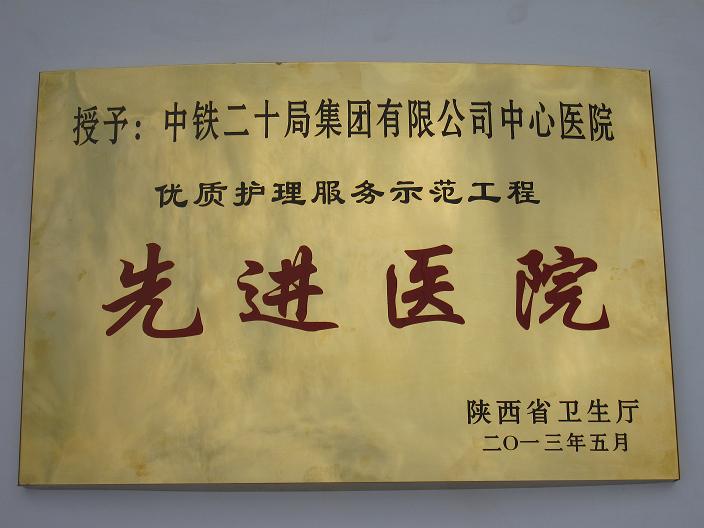 授予：中铁二十局集团有限公司中心医院
优质护理服务示范工程
先进医院
陕西省卫生厅
二〇一三年五月